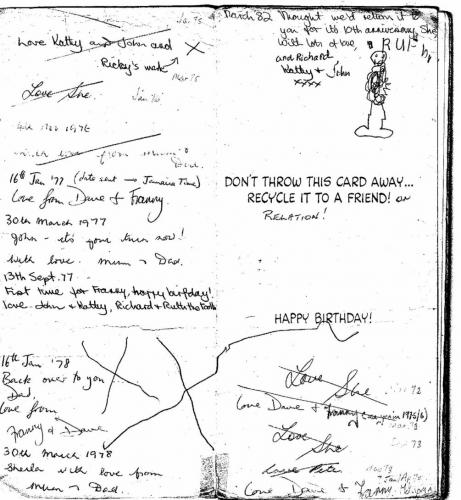 Jan 75
Love Kathy and John and
Ricky's mark
Mar 75
Love She.
Jan 76
4th Mar 1976
with love from Mum &
Dad.
16th Jan '77 (date sent → Jamaica Time)
Love from Dave & Franny.
30th March 1977
John - it's your turn now!
with love. Mum & Dad.
13th Sept. 77
First time for Franny, happy birthday!
love John & Kathy, Richard & Ruth the
16th Jan '78
Back over to you
Dad.
Love from
Franny & Dave
30th March 1978
Sheila with love from
Mum & Dad.
March 82 Thought we'd return it to
you for its 10th anniversary She
With lots of love,
and Richard
Kathy & John
xxxx
RUTH
DON'T THROW THIS CARD AWAY...
RECYCLE IT TO A FRIEND! OR
RELATION!
HAPPY BIRTHDAY!
Love She
72
Love Dave & Franny
Love
She
73
Love Dave & Franny